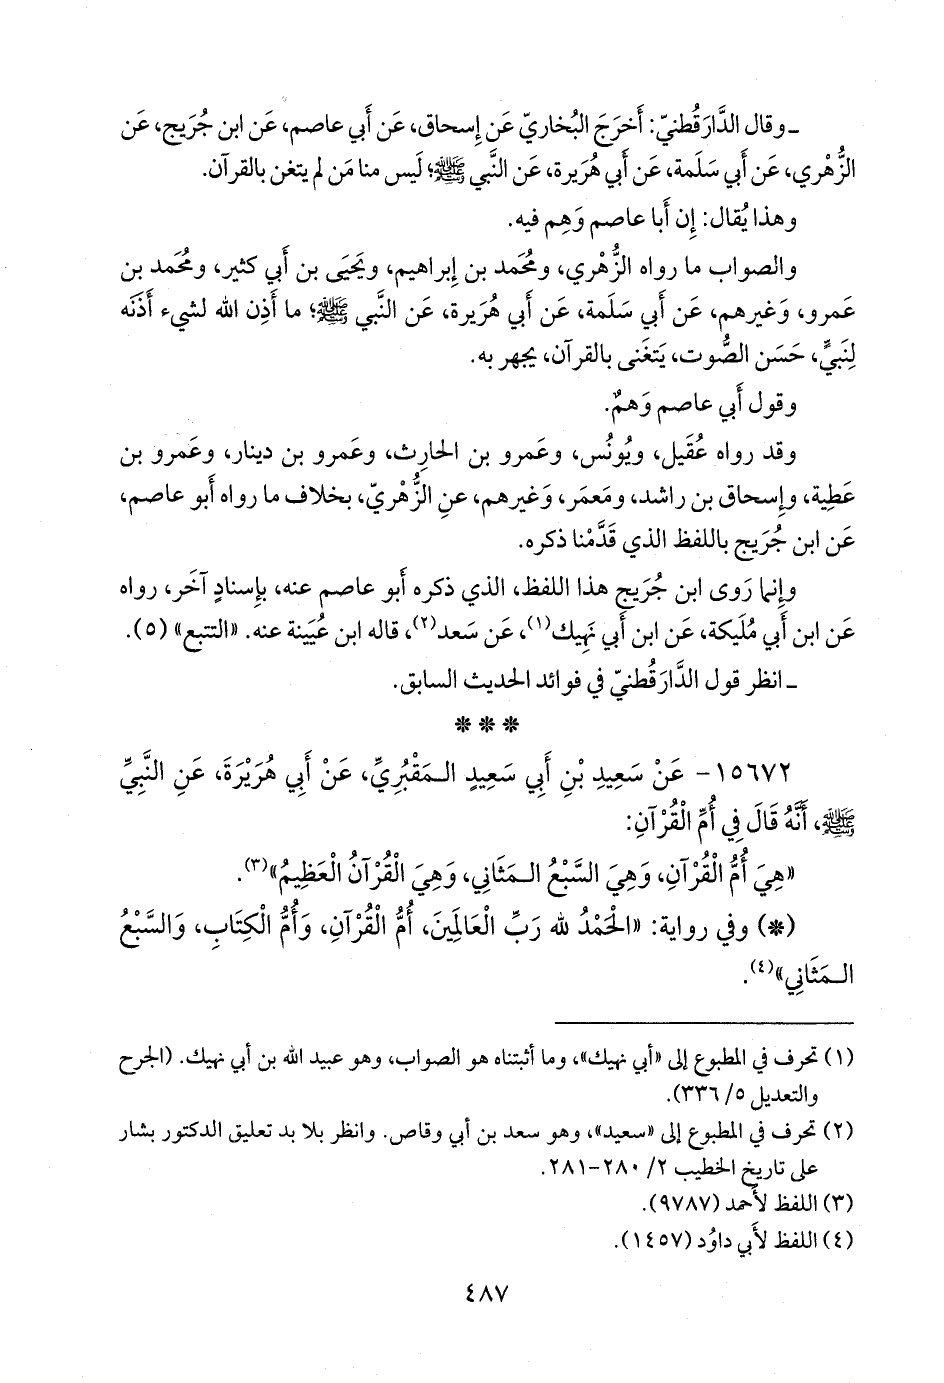 ـ وقال الدَّارَقُطنيّ: أَخرَجَ البُخاريّ عَن إِسحاق، عَن أَبي عاصم، عَن ابن جُرَيج، عَن
الزُّهْري، عَن أَبي سَلَمة، عَن أَبي هُرَيرة، عَن النَّبي ﷺ؛ لَيس منا مَن لم يتغن بالقرآن.
وهذا يُقال: إِن أَبا عاصم وَهِم فيه.
والصواب ما رواه الزُّهْري، ومُحَمد بن إِبراهيم، ويَحيَى بن أَبي كثير، ومُحَمد بن
عَمرو، وَغيرهم، عَن أَبي سَلَمة، عَن أَبي هُرَيرة، عَن النَّبي ﷺ؛ ما أَذِن الله لشيء أَذَنَه
لِنَبيٍّ، حَسَن الصُّوت، يَتغَنى بالقرآن، يجهر به.
وقول أَبي عاصم وَهمٌ.
وقد رواه عُقَيل، ويُونُس، وعَمرو بن الحارِث، وعَمرو بن دينار، وعَمرو بن
عَطِية، وإِسحاق بن راشد، ومَعمَر، وَغيرهم، عنِ الزُّهْريّ، بخلاف ما رواه أَبو عاصم،
عَن ابن جُرَيج باللفظ الذي قَدَّمْنا ذكره.
وإِنما رَوى ابن جُرَيج هذا اللفظ، الذي ذكره أَبو عاصم عنه، بإِسنادٍ آخَر، رواه
عَن ابن أَبي مُلَيكة، عَن ابن أَبي نَهِيك(١)، عَن سَعد(٢)، قاله ابن عُيَينة عنه. «التتبع» (٥).
ـ انظر قول الدَّارَقُطنيّ في فوائد الحديث السابق.
* * *
١٥٦٧٢- عَنْ سَعِيدِ بْنِ أَبِي سَعِيدٍ الـمَقْبُرِيِّ، عَنْ أَبِي هُرَيْرَةَ، عَنِ النَّبِيِّ
ﷺ، أَنَّهُ قَالَ فِي أُمِّ الْقُرْآنِ:
«هِيَ أُمُّ الْقُرْآنِ، وَهِيَ السَّبْعُ الـمَثَانِي، وَهِيَ الْقُرْآنُ الْعَظِيمُ»(٣).
(*) وفي رواية: «الْحَمْدُ لله رَبِّ الْعَالَمِينَ، أُمُّ الْقُرْآنِ، وَأُمُّ الْكِتَابِ، وَالسَّبْعُ
الـمَثَانِي»(٤).
(١) تحرف في المطبوع إلى «أبي نهيك»، وما أثبتناه هو الصواب، وهو عبيد الله بن أبي نهيك. (الجرح
والتعديل ٥/ ٣٣٦).
(٢) تحرف في المطبوع إلى «سعيد»، وهو سعد بن أبي وقاص. وانظر بلا بد تعليق الدكتور بشار
على تاريخ الخطيب ٢/ ٢٨٠-٢٨١.
(٣) اللفظ لأَحمد (٩٧٨٧).
(٤) اللفظ لأَبي داوُد (١٤٥٧).
٤٨٧